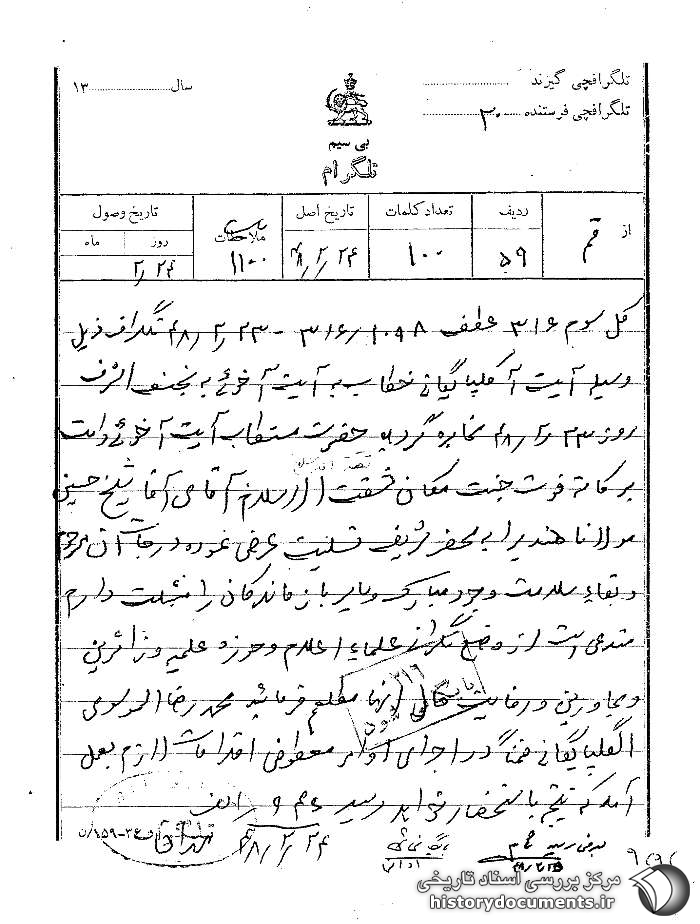 تلگرافچی گیرنده
تلگرافچی فرستنده ۳۰
سال ۱۳
بی سیم
تلگرام
از قم
ردیف ۵۹
تعداد کلمات ۱۰۰
تاریخ اصل ۴۸/۲/۲۴
ملاحظات ۱۱۰۰
تاریخ وصول
روز ماه
۲/۲۴
کل سوم ۳۱۶ عطف ۳۱۶/۱۰۹۸ - ۴۸/۲/۲۳ تلگراف ذیل
وسیله آیت آ گلپایگانی خطاب به آیت آ خوئی به نجف اشرف
روز ۴۸/۲/۲۳ مخابره گردید حضرت مستطاب آیت آ خوئی دامت
برکاته فوت جنت مکان آقای آقا شیخ حسین
مولانا را به محضر شریف تسلیت عرض نموده
و بقاء سلامت وجود مبارک و سایر بازماندگان را مسئلت دارم
مستدعی است از وضع نگرانی علماء اعلام و حوزه علمیه و زائرین
و مجاورین و رفاهیت حال آنها مطلع فرمائید محمد رضا الموسوی
الگلپایگانی ضمنا در اجرای اوامر معطوفی اقدامات لازم بعمل
آمد که نتیجه باستحضار خواهد رسید
۴۸/۲/۲۴
مرکز بررسی اسناد تاریخی
historydocuments.ir